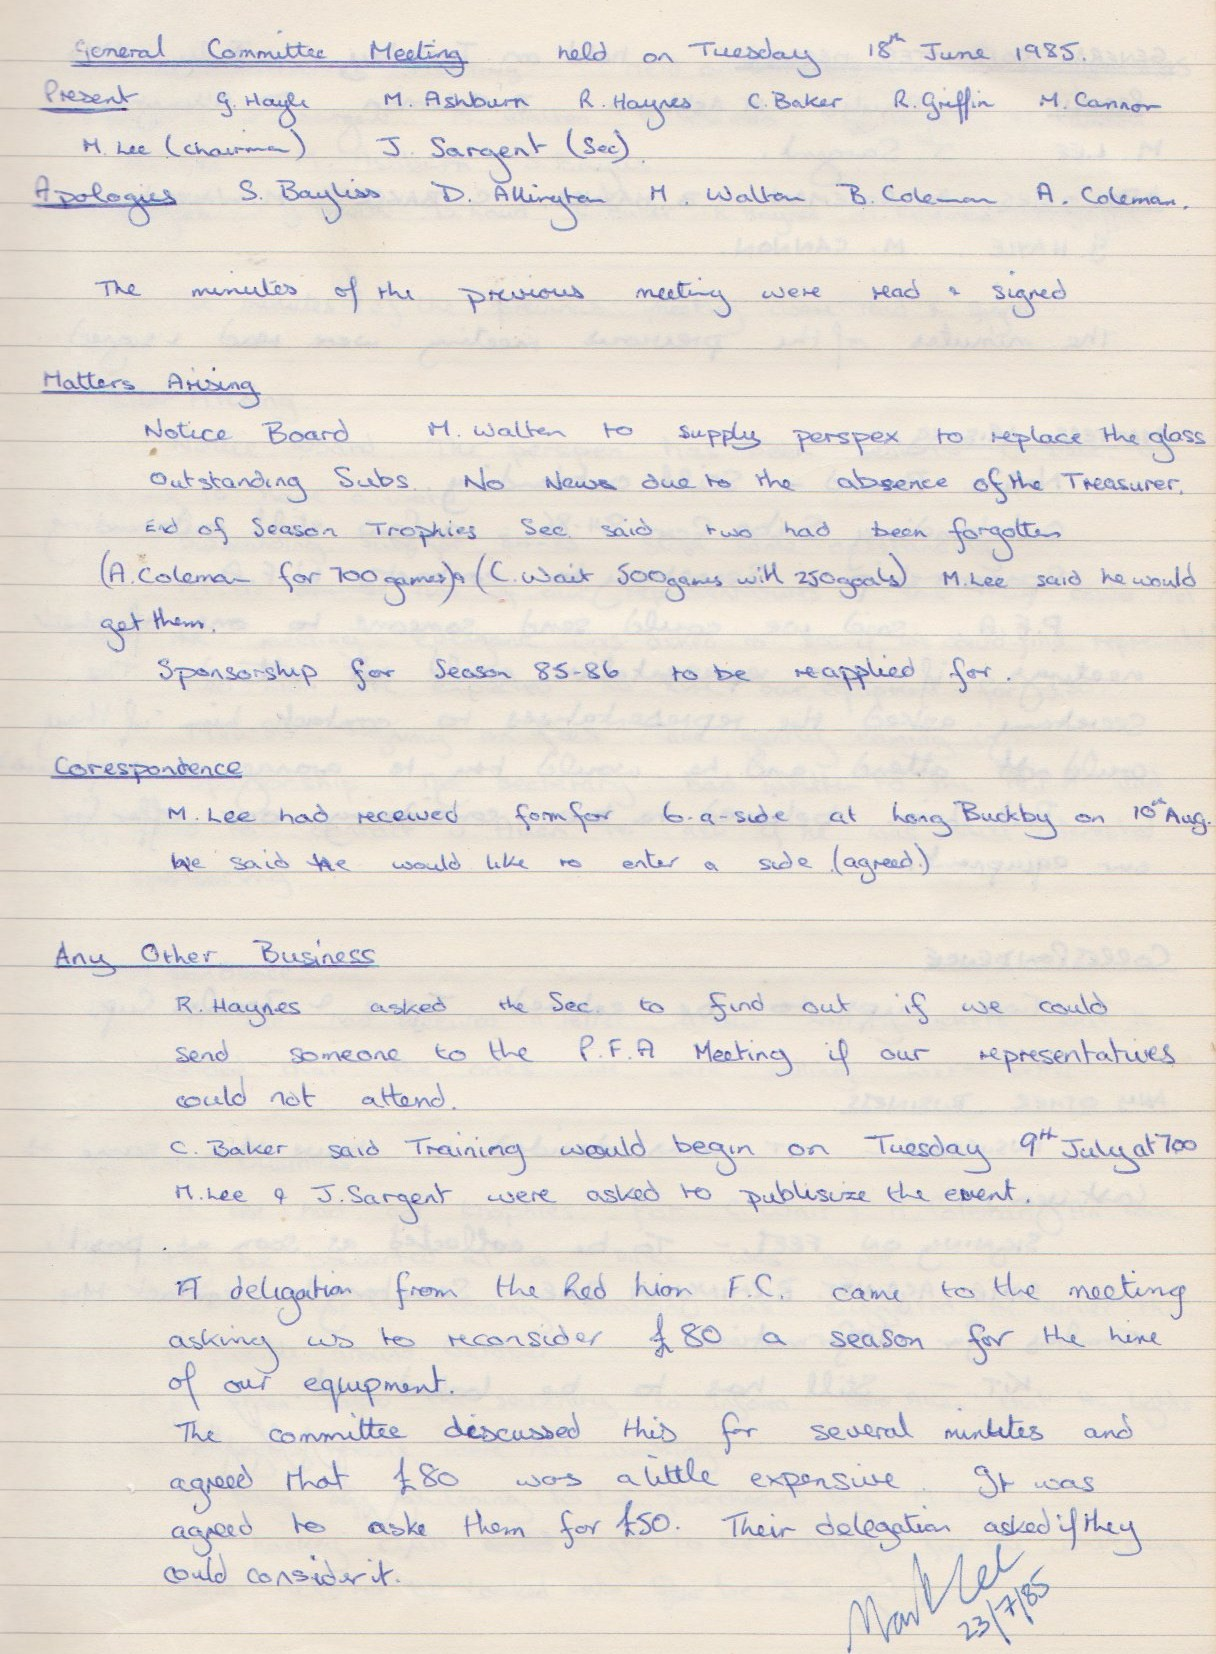 General Committee Meeting held on Tuesday 18th June 1985.
Present G. Hayle M. Ashburn R. Haynes C. Baker R. Griffin M. Cannon
M. Lee (chairman) J. Sargent (Sec)
Apologies S. Bayliss D. Allington M. Walton B. Coleman A. Coleman.
The minutes of the previous meeting were read & signed
Matters Arising
Notice Board M. Walton to supply perspex to replace the glass
Outstanding Subs. No News due to the absence of the Treasurer.
End of Season Trophies Sec. said two had been forgotten
(A. Coleman for 700 games) & (C. Wait 500 games with 250 goals) M. Lee said he would
get them.
Sponsorship for Season 85-86 to be reapplied for.
Corespondence
M. Lee had received form for 6-a-side at Long Buckby on 10th Aug.
He said he would like to enter a side (agreed.)
Any Other Business
R. Haynes asked the Sec. to find out if we could
send someone to the P.F.A Meeting if our representatives
could not attend.
C. Baker said Training would begin on Tuesday 9th July at 700
M. Lee & J. Sargent were asked to publisize the event.
A deligation from the Red Lion F.C. came to the meeting
asking us to reconsider £80 a season for the hire
of our equipment.
The committee discussed this for several minutes and
agreed that £80 was a little expensive. It was
agreed to aske them for £50. Their delegation asked if they
could consider it.
Mark Lee
23/7/85